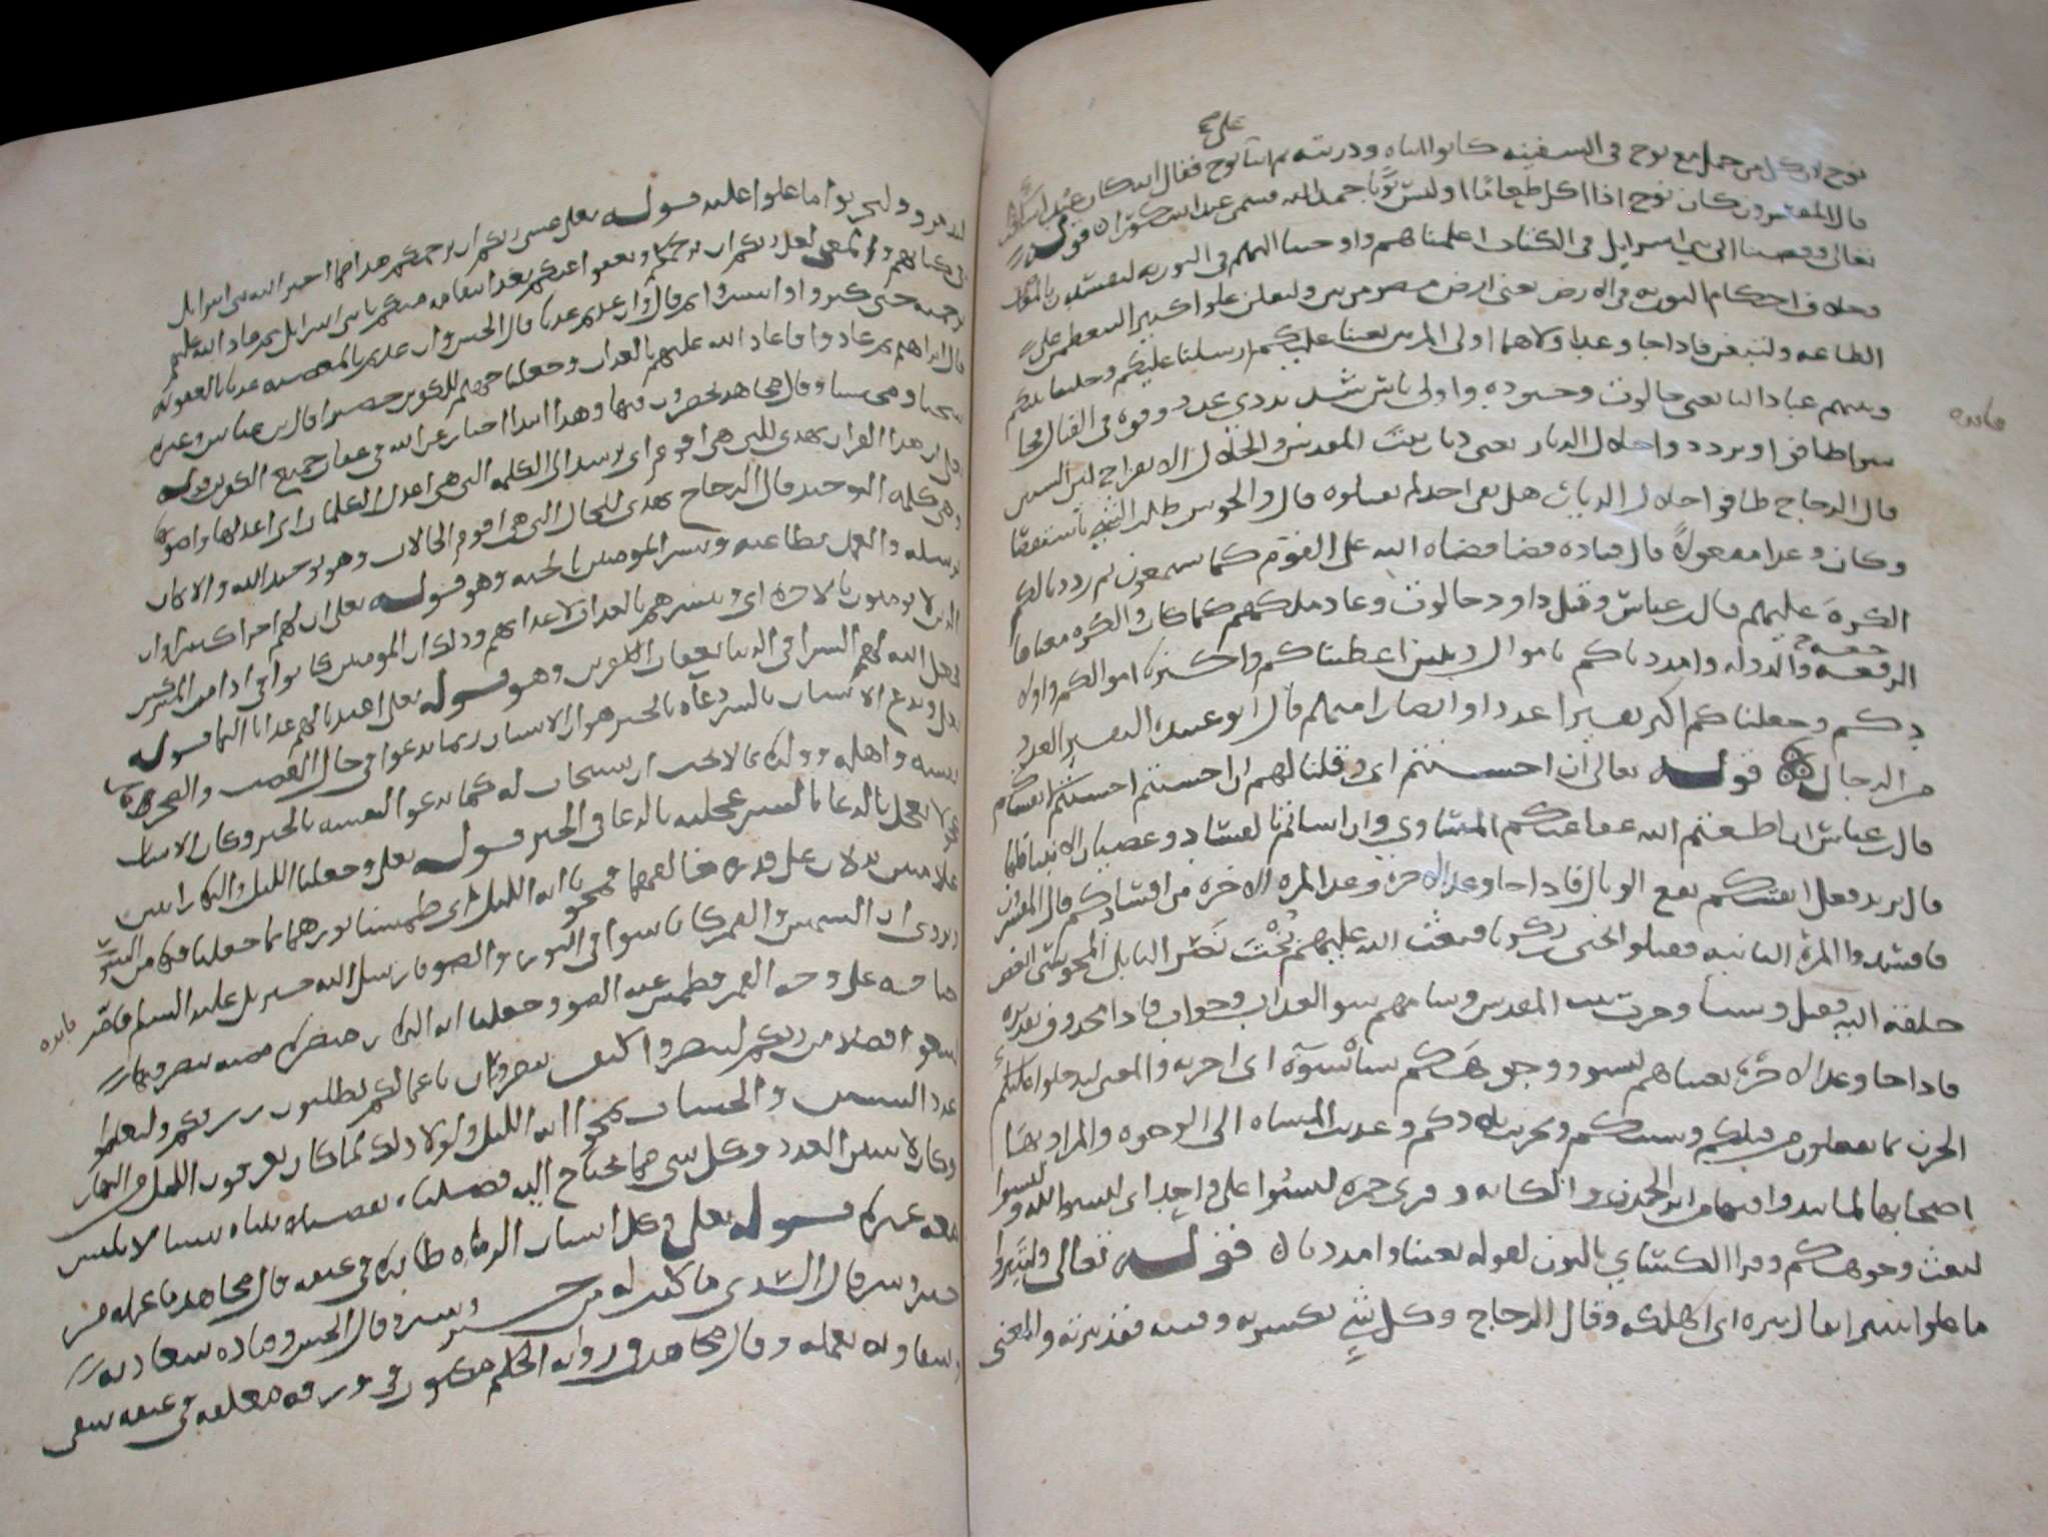 على
نوح لان كل من حمل مع نوح في السفينه كانوا ابناه وذريته ثم اثنا نوح فقال انه كان عبدا شكورا
قال المفسرون كان نوح اذا اكل طعاما او لبس ثوبا حمد الله فسمي عبدا شكورا قوله
تعالى وقضينا الى بني اسرايل في الكتاب اعلمناهم واوحينا اليهم في التوريه لتفسدن بالمعاصي
وخلاف احكام التوريه في الارض يعني ارض مصر مرتين ولتعلن علوا كبيرا التعظم عن
الطاعه والتبغي فاذا جا وعد اولاهما اولي المرتين بعثنا عليكم ارسلنا عليكم وخلينا بينكم
وبينهم عبادا لنا يعني جالوت وجنوده اولي باس شديد ذي عدد وقوه في القتال فجا
سوا طافوا وتردد واخلال الديار يعني ديار بيت المقدس والخلال الانفراج بين الشيين
قال الزجاج طافوا خلال الديار هل بقي احد لم يقتلوه قال والجوس طلب الشي باستقصا
وكان وعدا مفعولا قال قتاده قضا قضاه الله على القوم كما تسمعون ثم رددنا لكم
الكره عليهم قال ابن عباس وقتل داود جالوت وعاد ملكهم كما كان والكره معناها
الرجعه والدوله وامددناكم باموال وبنين اعطيناكم واكثرنا اموالكم واولا
دكم وجعلناكم اكثر نفيرا عددا وانصارا منهم قال ابو عبيده النفير العدد
من الرجال قوله تعالى ان احسنتم اي وقلنا لهم ان احسنتم احسنتم لانفسكم
قال ابن عباس ان اطعتم الله عفا عنكم المساوي وان اساتم بالفساد وعصيان الانبيا فلها
قال يريد فعلى انفسكم يقع الوبال فاذا جا وعد الاخره وعد المره الاخره من افسادكم قال المفسرون
فافسدوا المره الثانيه فقتلوا يحيى بن زكريا فبعث الله عليهم بخت نصر البابلي المجوسي ابغض
خلقه اليه فقتل وسبا وخرب بيت المقدس وسامهم سو العذاب وجواب فاذا محذوف تقديره
فاذا جا وعد الاخره بعثناهم ليسووا وجوهكم ساه يسوه اي احزنه والمعنى ليدخلوا عليكم
الحزن بما يفعلون من قتلكم وسبيكم وتخريب بلادكم وعديت المساه الى الوجوه والمراد بها
اصحابها لما يبدوا فيها من اثر الحزن والكابه وقرى حمزه ليسوا على واحد اي ليسو الله او ليسوا
لبعث وجوهكم وقرا الكساي بالنون لقوله بعثنا وامددنا قوله تعالى وليتبروا
ما علوا تتبيرا يقال تبره اي اهلكه وقال الزجاج وكل شي كسرته وفتته فقد تبرته والمعنى
فايده
ليدمروا وليخربوا ما علوا عليه قوله تعالى عسى ربكم ان يرحمكم هذا مما اخبر الله بني اسرايل
في كتابهم والمعنى لعل ربكم ان يرحمكم ويعفوا عنكم بعد انتقامه منكم يا بني اسرايل ثم عاد الله عليهم
برحمته حتى كثروا وانتشروا ثم قال وان عدتم عدنا قال الحسن وان عدتم بالمعصيه عدنا بالعقوبه
قال ابراهيم ثم عادوا فاعاد الله عليهم بالعذاب وجعلنا جهنم للكافرين حصيرا قال ابن عباس وغيره
سجنا ومحبسا وقال مجاهد يحصرون فيها وهذا ابتدا اخبار عن الله في عقاب جميع الكافرين قوله
تعالى ان هذا القران يهدي للتي هي اقوم اي يرشد الى الكلمه التي هي اعدل الكلمات اي اعدلها واصوبها
وهي كلمه التوحيد قال الزجاج يهدي للحال التي هي اقوم الحالات وهو توحيد الله والايمان
برسله والعمل بطاعته ويبشر المومنين بالجنه وهو قوله تعالى ان لهم اجرا كبيرا وان
الذين لا يومنون بالاخره اي ويبشرهم بالعذاب لاعدايهم وذلك ان المومنين كانوا في اذا من المشركين
فجعل الله لهم البشرا في الدنيا بعقاب الكافرين وهو قوله تعالى اعتدنا لهم عذابا اليما قوله
تعالى ويدع الانسان بالشر دعاه بالخير هو ان الانسان ربما يدعوا في حال الغضب والضجر على
نفسه واهله وولده بما لا يحب ان يستجاب له كما يدعوا لنفسه بالخير وكان الانسان
عجولا يعجل بالدعا بالشر عجلته بالدعا في الخير قوله تعالى وجعلنا الليل والنهار ايتين
علامتين يدلان على قدره خالقهما فمحونا ايه الليل اي طمسنا نورهما بما جعلنا فيها من السواد
وروى ان الشمس والقمر كانا سوا في النور والضو فارسل الله جبريل عليه السلم فامر
جناحه على وجه القمر فطمس عنه الضو وجعلنا ايه النهار مبصره مضيه يبصر فيها
لتبتغوا فضلا من ربكم لتبصروا كيف تتصرفون باعمالكم تطلبون رزق ربكم ولتعلموا
عدد السنين والحساب بمحوا ايه الليل ولولا ذلك لما كان يعرف الليل من النهار
وكان لا يتبين العدد وكل شي مما يحتاج اليه فصلناه تفصيلا بيناه تبيينا لا يلتبس
معه غيره قوله تعالى وكل انسان الزمناه طايره في عنقه قال مجاهد ما عمله من
خير وشر قال السدي ما كتب له من خير وشر وقال الحسن وقتاده سعادته
وشقاوته بعمله وقال مجاهد في روايه الحكم مكتوب في ورقه معلقه في عنقه شقي
فايده